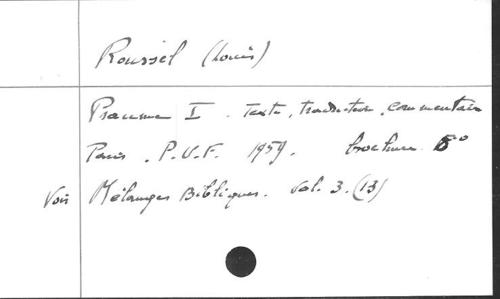 Roussel (Louis)
Psaume I. Texte, traduction, commentaire
Paris, P.U.F. 1959. brochure 8°
Voir Mélanges Bibliques. Vol. 3. (13)